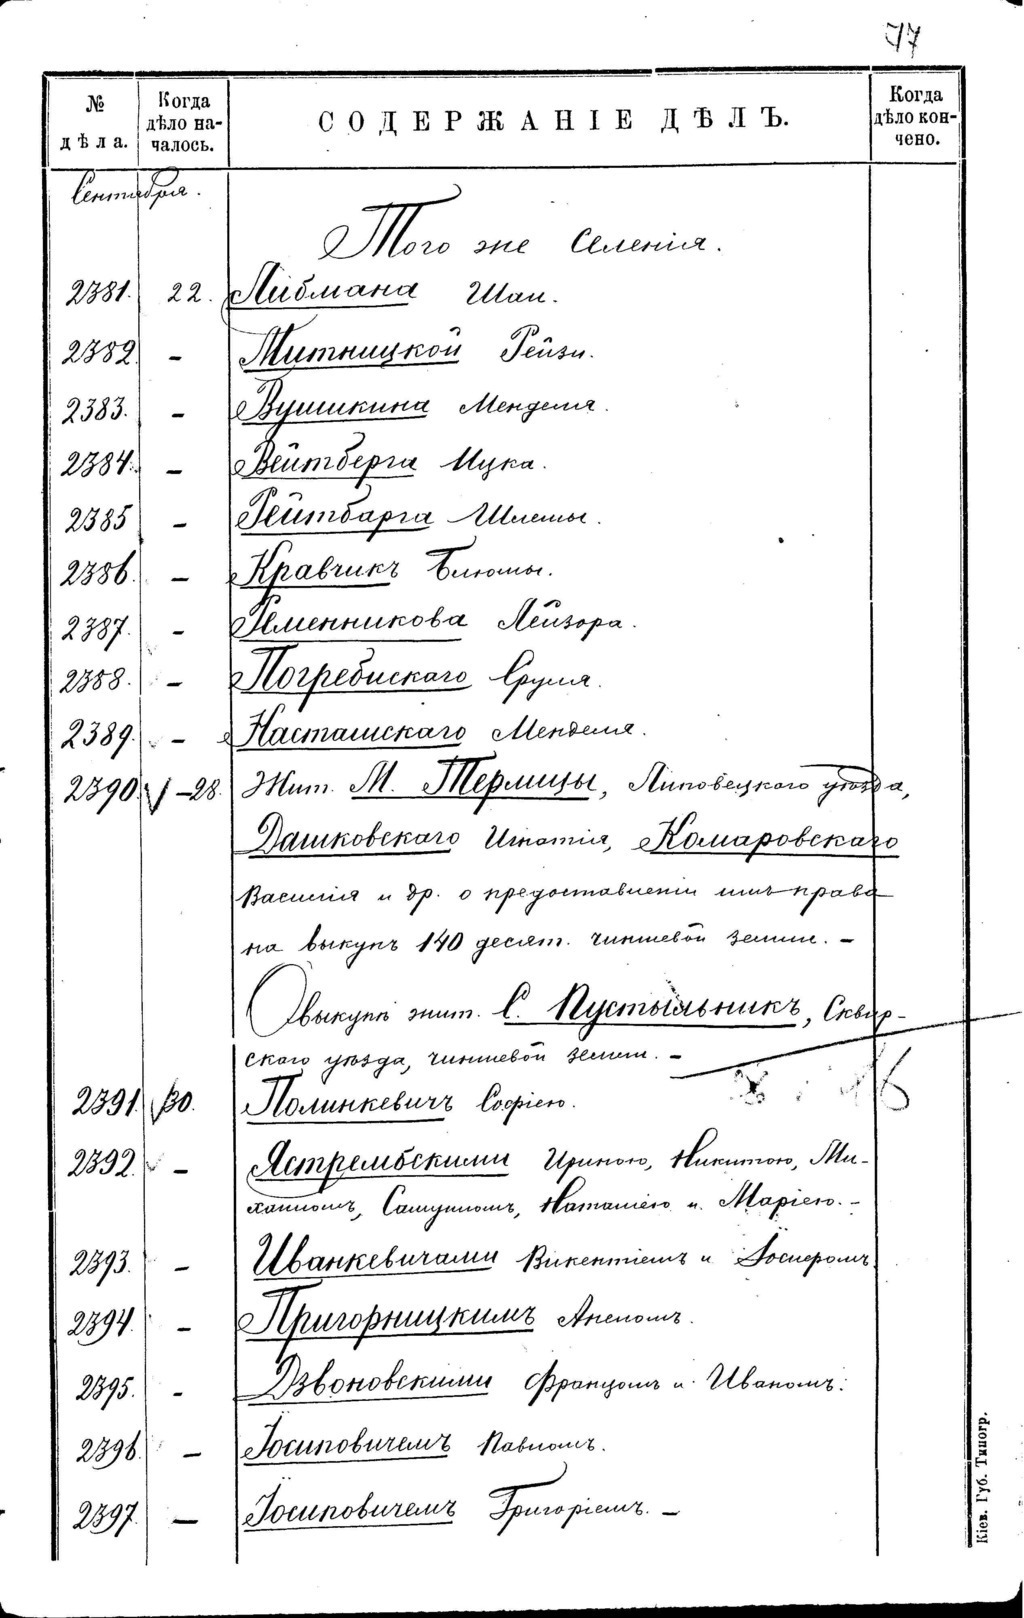 77
№ дѣла. Когда дѣло началось. СОДЕРЖАНІЕ ДѢЛЪ. Когда дѣло кончено.
Сентября.
Того же Селенія.
2381. 22. Либмана Шаи.
2382. - Митницкой Рейзи.
2383. - Вушикина Менделя.
2384. - Вейтберга Ицка.
2385 - Рейтбарга Шлемы.
2386. - Кравчикъ Блюмы.
2387. - Лейзора.
2388. - Погребискаго Сруля.
2389. - Насташскаго Менделя.
2390. -28. Жит. М. Терлицы, Липовецкаго уѣзда,
Дашковскаго Игнатія, Комаровскаго
Василія и др. о предоставленіи имъ права
на выкупъ 140 десят. чиншевой земли. -
О выкупѣ жит. С. Пустыльникъ, Сквир-
скаго уѣзда, чиншевой земли. -
2391. 30. Полинкевичъ Софіею.
2392. - Ястрембскими Ириною, Никитою, Ми-
хаиломъ, Самуиломъ, Наталіею и Маріею. -
2393. - Иванкевичами Викентіемъ и Іосифомъ
2394. - Пригорницкимъ
2395. - Дзвоновскими Францомъ и Иваномъ.
2396. - Іосиповичемъ Павломъ.
2397. - Іосиповичемъ Григоріемъ. -
Кіев. Губ. Типогр.